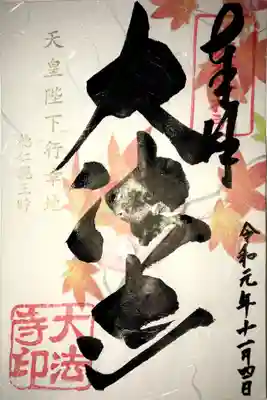 奉拝
令和元年十一月四日
大法寺
天皇陛下行幸地
徳仁親王時
大法寺印